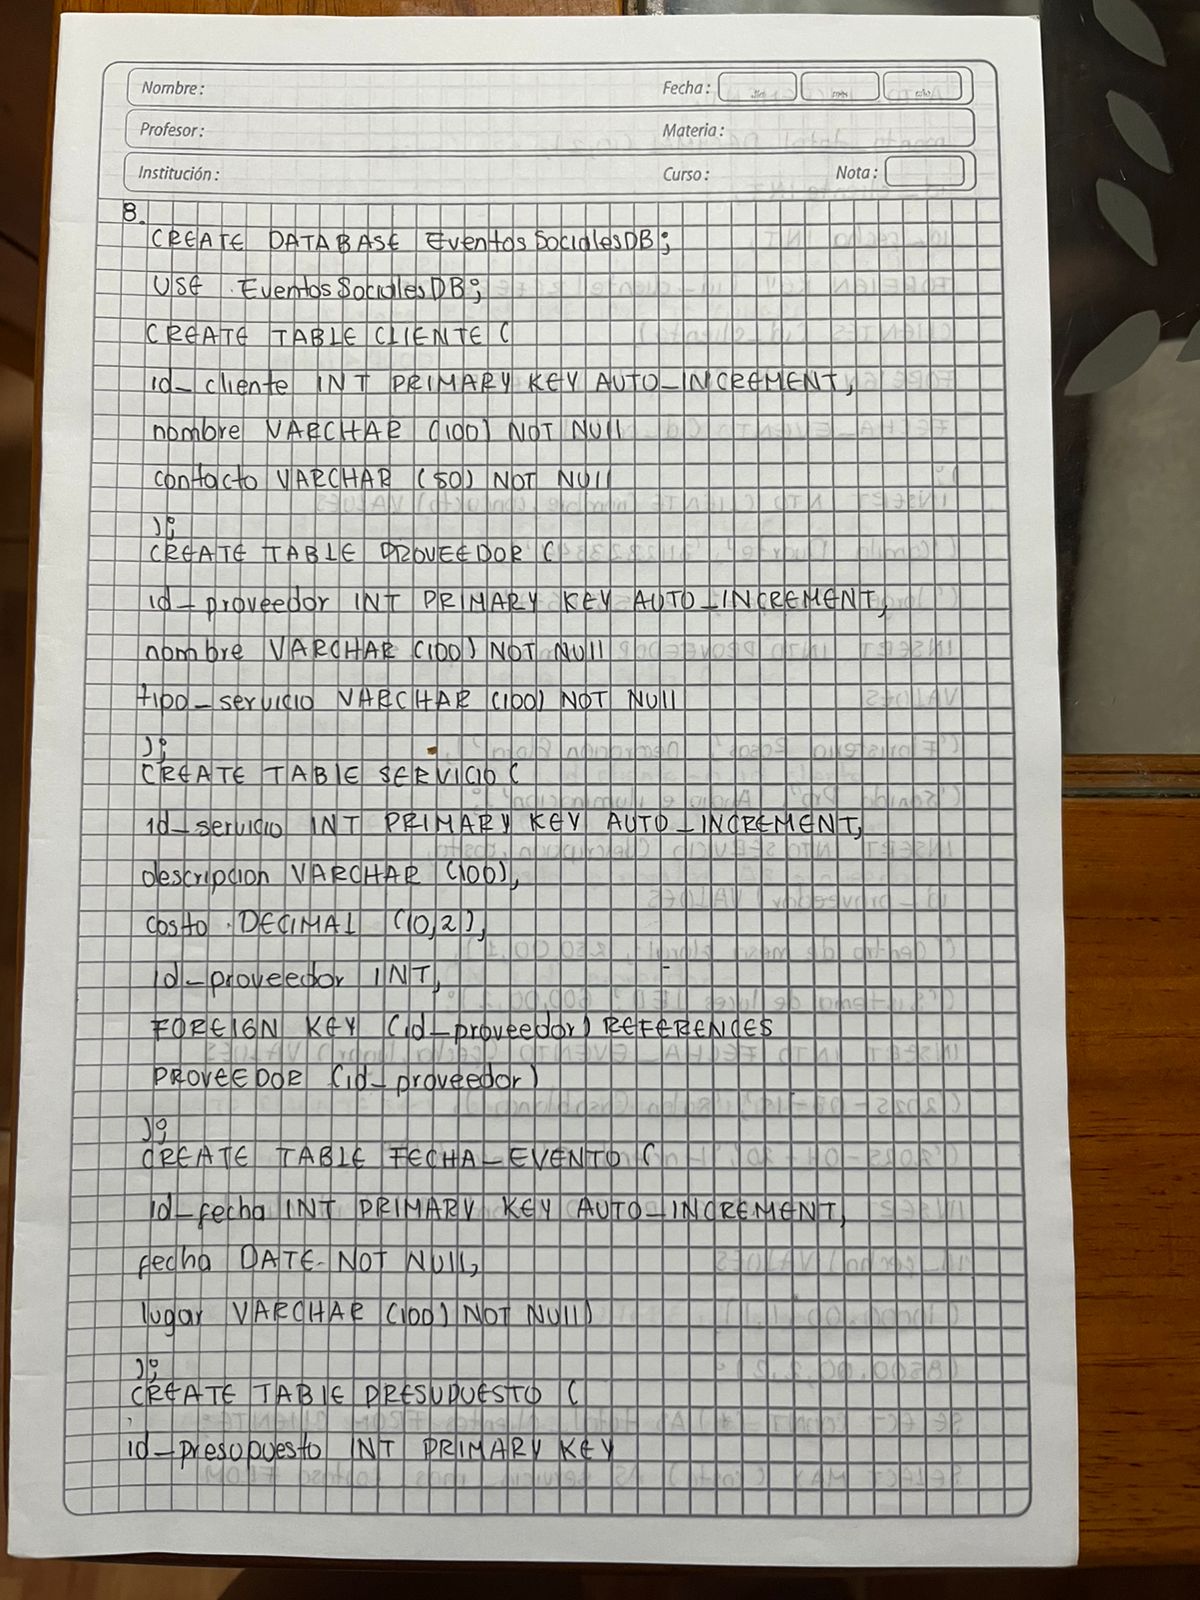 Nombre:
Fecha:
Profesor:
Materia:
Institución:
Curso:
Nota:
8.
CREATE DATABASE EventosSocialesDB;
USE EventosSocialesDB;
CREATE TABLE CLIENTE (
id_cliente INT PRIMARY KEY AUTO_INCREMENT,
nombre VARCHAR (100) NOT NUll
contacto VARCHAR (50) NOT NUll
);
CREATE TABLE PROVEEDOR (
id_proveedor INT PRIMARY KEY AUTO_INCREMENT,
nombre VARCHAR (100) NOT NUll
tipo_servicio VARCHAR (100) NOT NUll
);
CREATE TABLE SERVICIO (
id_servicio INT PRIMARY KEY AUTO_INCREMENT,
descripcion VARCHAR (100),
costo DECIMAL (10,2),
id_proveedor INT,
FOREIGN KEY (id_proveedor) REFERENCES
PROVEEDOR (id_proveedor)
);
CREATE TABLE FECHA_EVENTO (
id_fecha INT PRIMARY KEY AUTO_INCREMENT,
fecha DATE NOT NUll,
lugar VARCHAR (100) NOT NUll)
);
CREATE TABLE PRESUPUESTO (
id_presupuesto INT PRIMARY KEY